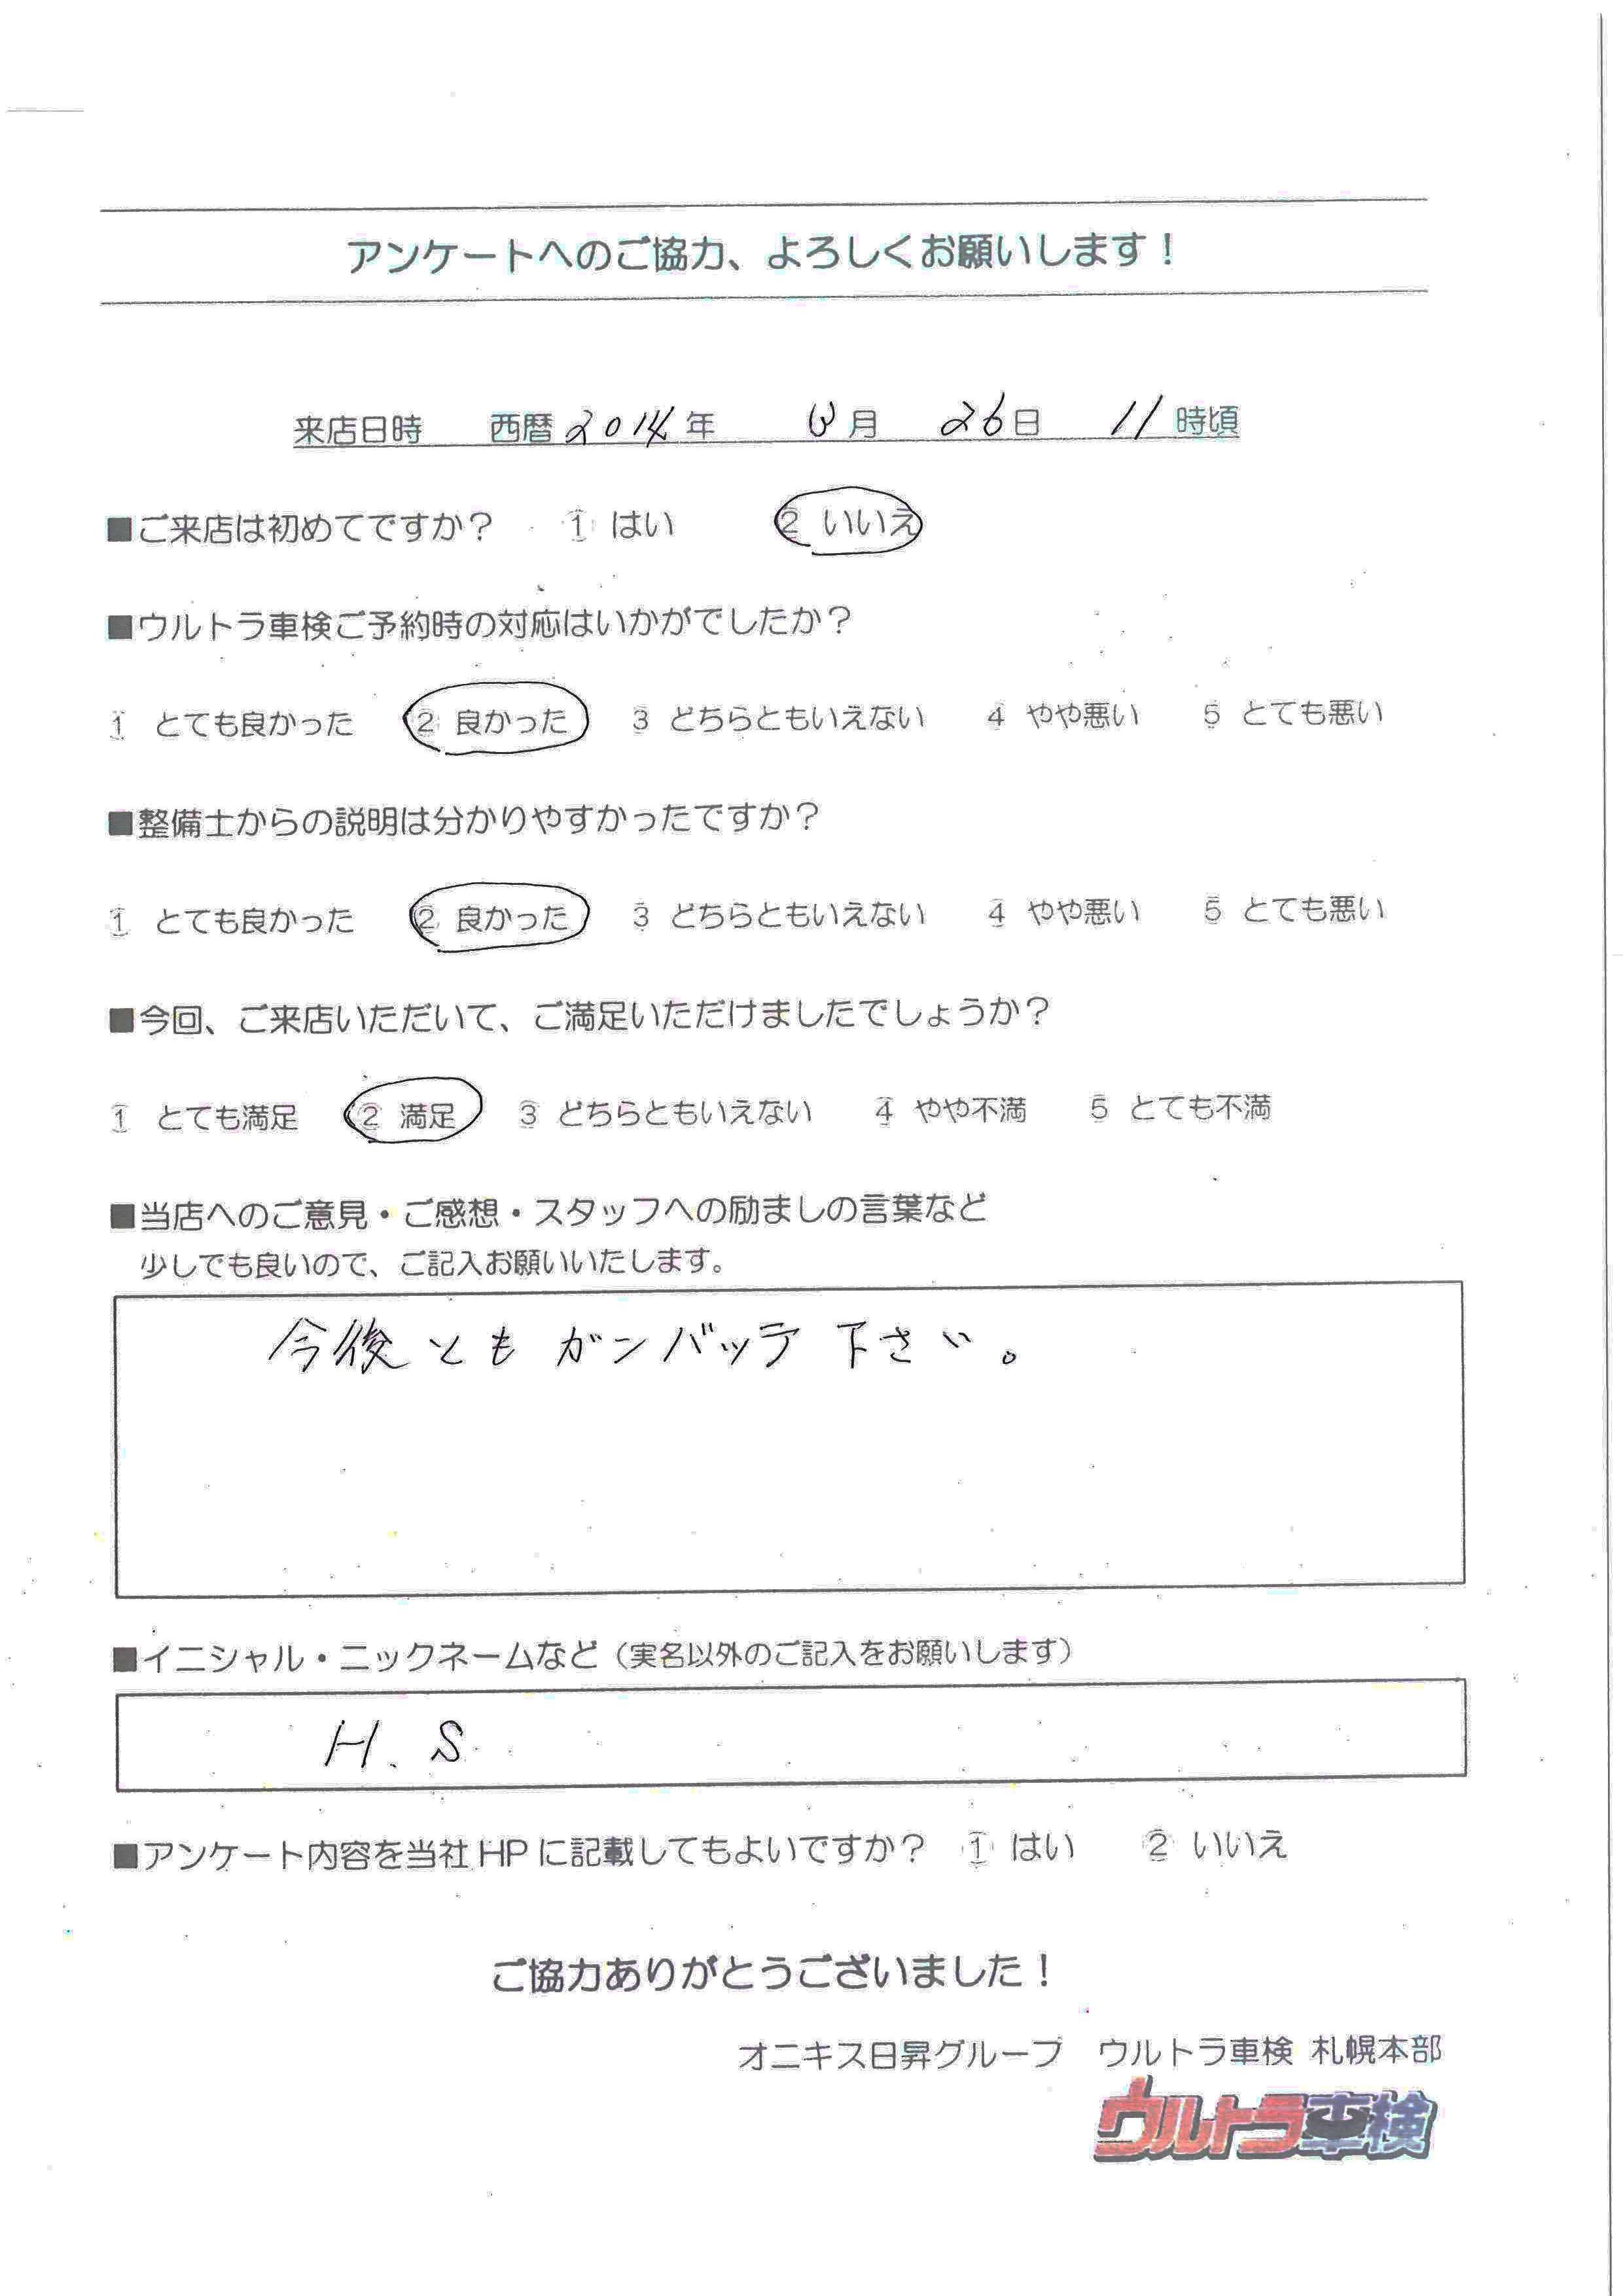 アンケートへのご協力、よろしくお願いします！
来店日時 西暦2014年 3月 26日 11時頃
■ご来店は初めてですか？ 1 はい 2 いいえ
■ウルトラ車検ご予約時の対応はいかがでしたか？
1 とても良かった 2 良かった 3 どちらともいえない 4 やや悪い 5 とても悪い
■整備士からの説明は分かりやすかったですか？
1 とても良かった 2 良かった 3 どちらともいえない 4 やや悪い 5 とても悪い
■今回、ご来店いただいて、ご満足いただけましたでしょうか？
1 とても満足 2 満足 3 どちらともいえない 4 やや不満 5 とても不満
■当店へのご意見・ご感想・スタッフへの励ましの言葉など
少しでも良いので、ご記入お願いいたします。
今後ともガンバッテ下さい。
■イニシャル・ニックネームなど（実名以外のご記入をお願いします）
H.S
■アンケート内容を当社HPに記載してもよいですか？ 1 はい 2 いいえ
ご協力ありがとうございました！
オニキス日昇グループ ウルトラ車検 札幌本部
ウルトラ車検